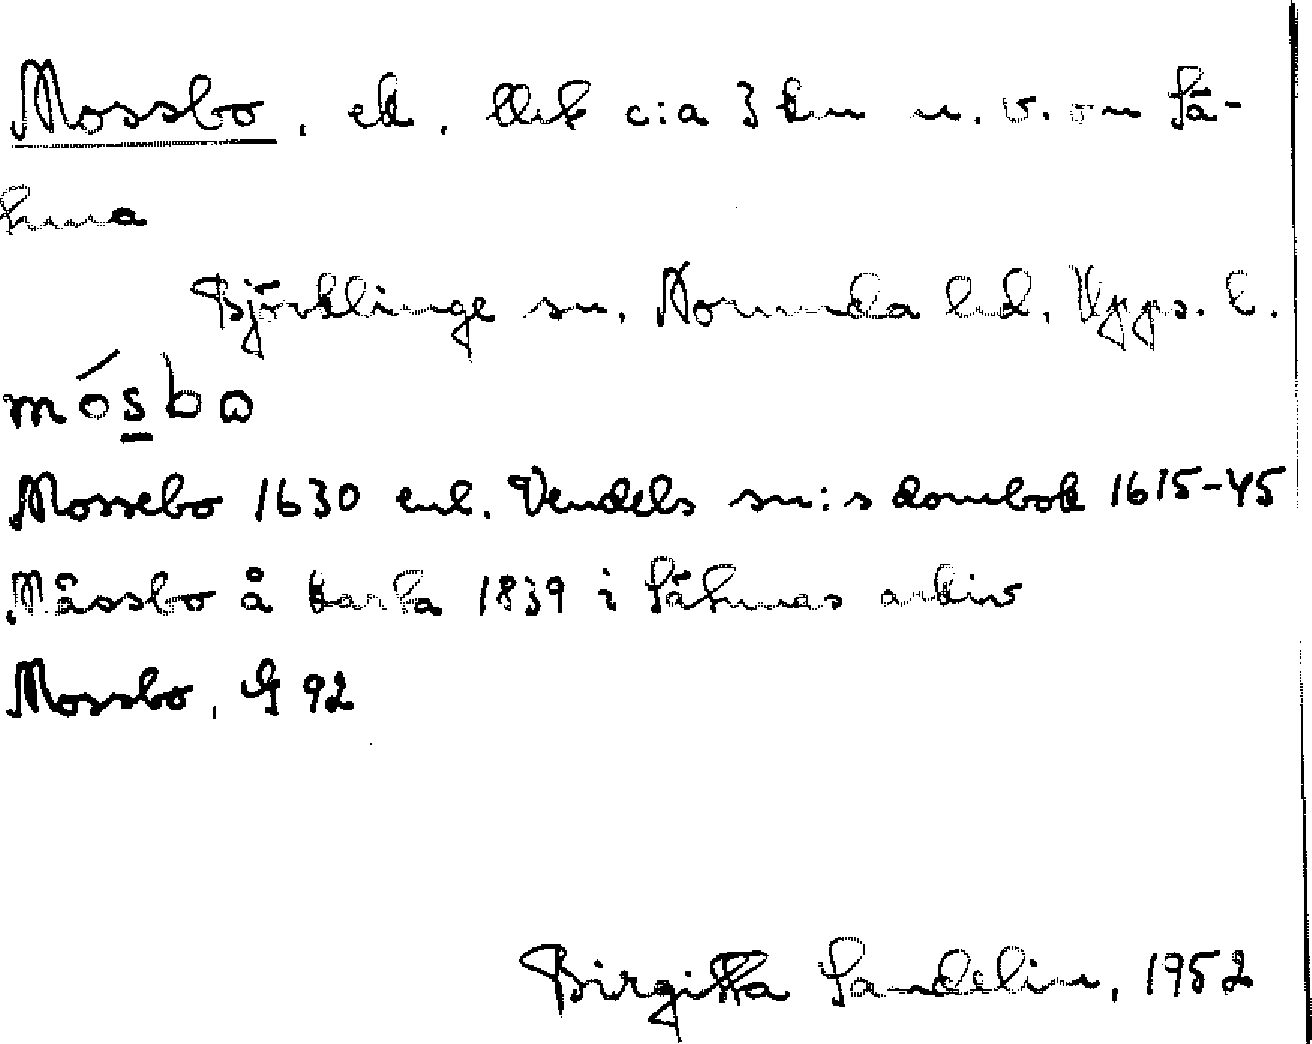 Mossbo, ek. blek c:a 3 km n. v. om Så-
tuna
Björklinge sn. Norunda hd. Upps. l.
mósbo
Mossebo 1630 enl. Vendels sn:s dombok 1615-45
Måssbo å karta 1839 i Såtunas arkiv
Mossbo, G 92
Birgitta Sandelin, 1952